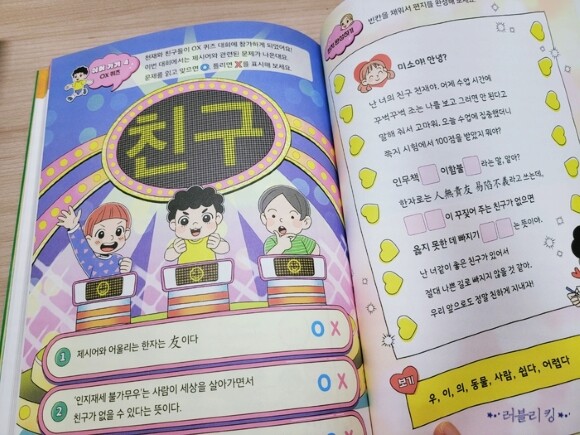 실력 기르기 4
OX 퀴즈
천재와 친구들이 OX 퀴즈 대회에 참가하게 되었어요!
이번 대회에서는 제시어와 관련된 문제가 나온대요.
문제를 읽고 맞으면 O, 틀리면 X를 표시해 보세요.
친구
1 제시어와 어울리는 한자는 友이다
O X
2 '인지재세 불가무우'는 사람이 세상을 살아가면서
친구가 없을 수 있다는 뜻이다.
O X
빈칸을 채워서 편지를 완성해 보세요.
미소야! 안녕?
난 너의 친구 천재야. 어제 수업 시간에
꾸벅꾸벅 조는 나를 보고 그러면 안 된다고
말해 줘서 고마워. 오늘 수업에 집중했더니
쪽지 시험에서 100점을 받았지 뭐야?
인무책 이함불 라는 말, 알아?
한자로는 人無責友 易陷不義라고 쓰는데,
이 꾸짖어 주는 친구가 없으면
옳지 못한 데 빠지기 는 뜻이야.
난 너같이 좋은 친구가 있어서
절대 나쁜 길로 빠지지 않을 것 같아.
우리 앞으로도 정말 친하게 지내자!
보기
우, 이, 의, 동물, 사람, 쉽다, 어렵다
러블리킹